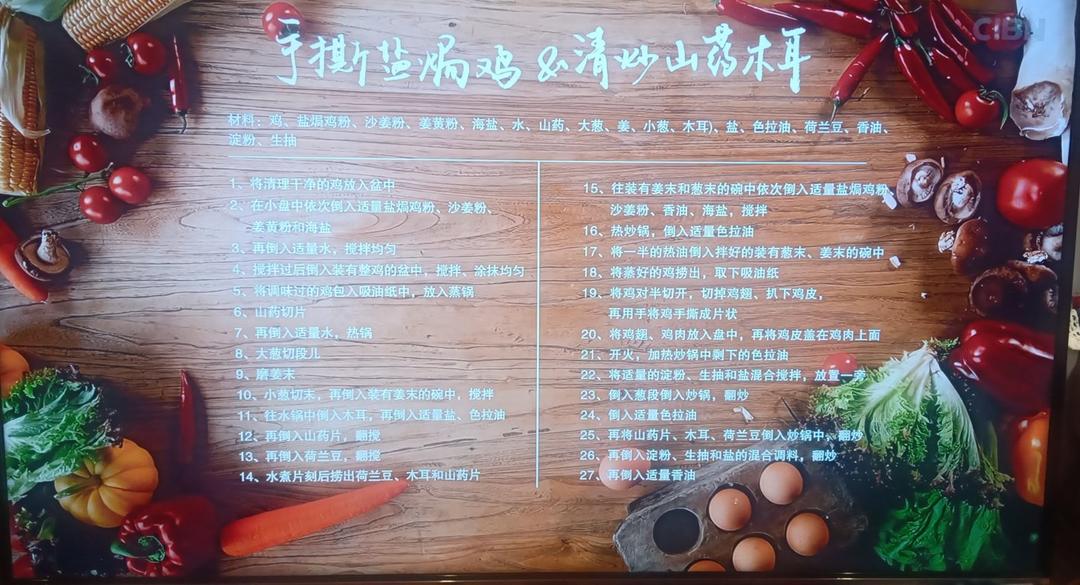 手撕盐焗鸡&清炒山药木耳
CIBN
材料：鸡、盐焗鸡粉、沙姜粉、姜黄粉、海盐、水、山药、大葱、姜、小葱、木耳)、盐、色拉油、荷兰豆、香油、
淀粉、生抽
1、将清理干净的鸡放入盆中
2、在小盘中依次倒入适量盐焗鸡粉、沙姜粉、
姜黄粉和海盐
3、再倒入适量水，搅拌均匀
4、搅拌过后倒入装有整鸡的盆中，搅拌、涂抹均匀
5、将调味过的鸡包入吸油纸中，放入蒸锅
6、山药切片
7、再倒入适量水，热锅
8、大葱切段儿
9、磨姜末
10、小葱切末，再倒入装有姜末的碗中，搅拌
11、往水锅中倒入木耳，再倒入适量盐、色拉油
12、再倒入山药片，翻搅
13、再倒入荷兰豆，翻搅
14、水煮片刻后捞出荷兰豆、木耳和山药片
15、往装有姜末和葱末的碗中依次倒入适量盐焗鸡粉、
沙姜粉、香油、海盐，搅拌
16、热炒锅，倒入适量色拉油
17、将一半的热油倒入拌好的装有葱末、姜末的碗中
18、将蒸好的鸡捞出，取下吸油纸
19、将鸡对半切开，切掉鸡翅、扒下鸡皮，
再用手将鸡手撕成片状
20、将鸡翅、鸡肉放入盘中，再将鸡皮盖在鸡肉上面
21、开火，加热炒锅中剩下的色拉油
22、将适量的淀粉、生抽和盐混合搅拌，放置一旁
23、倒入葱段倒入炒锅，翻炒
24、倒入适量色拉油
25、再将山药片、木耳、荷兰豆倒入炒锅中，翻炒
26、再倒入淀粉、生抽和盐的混合调料，翻炒
27、再倒入适量香油